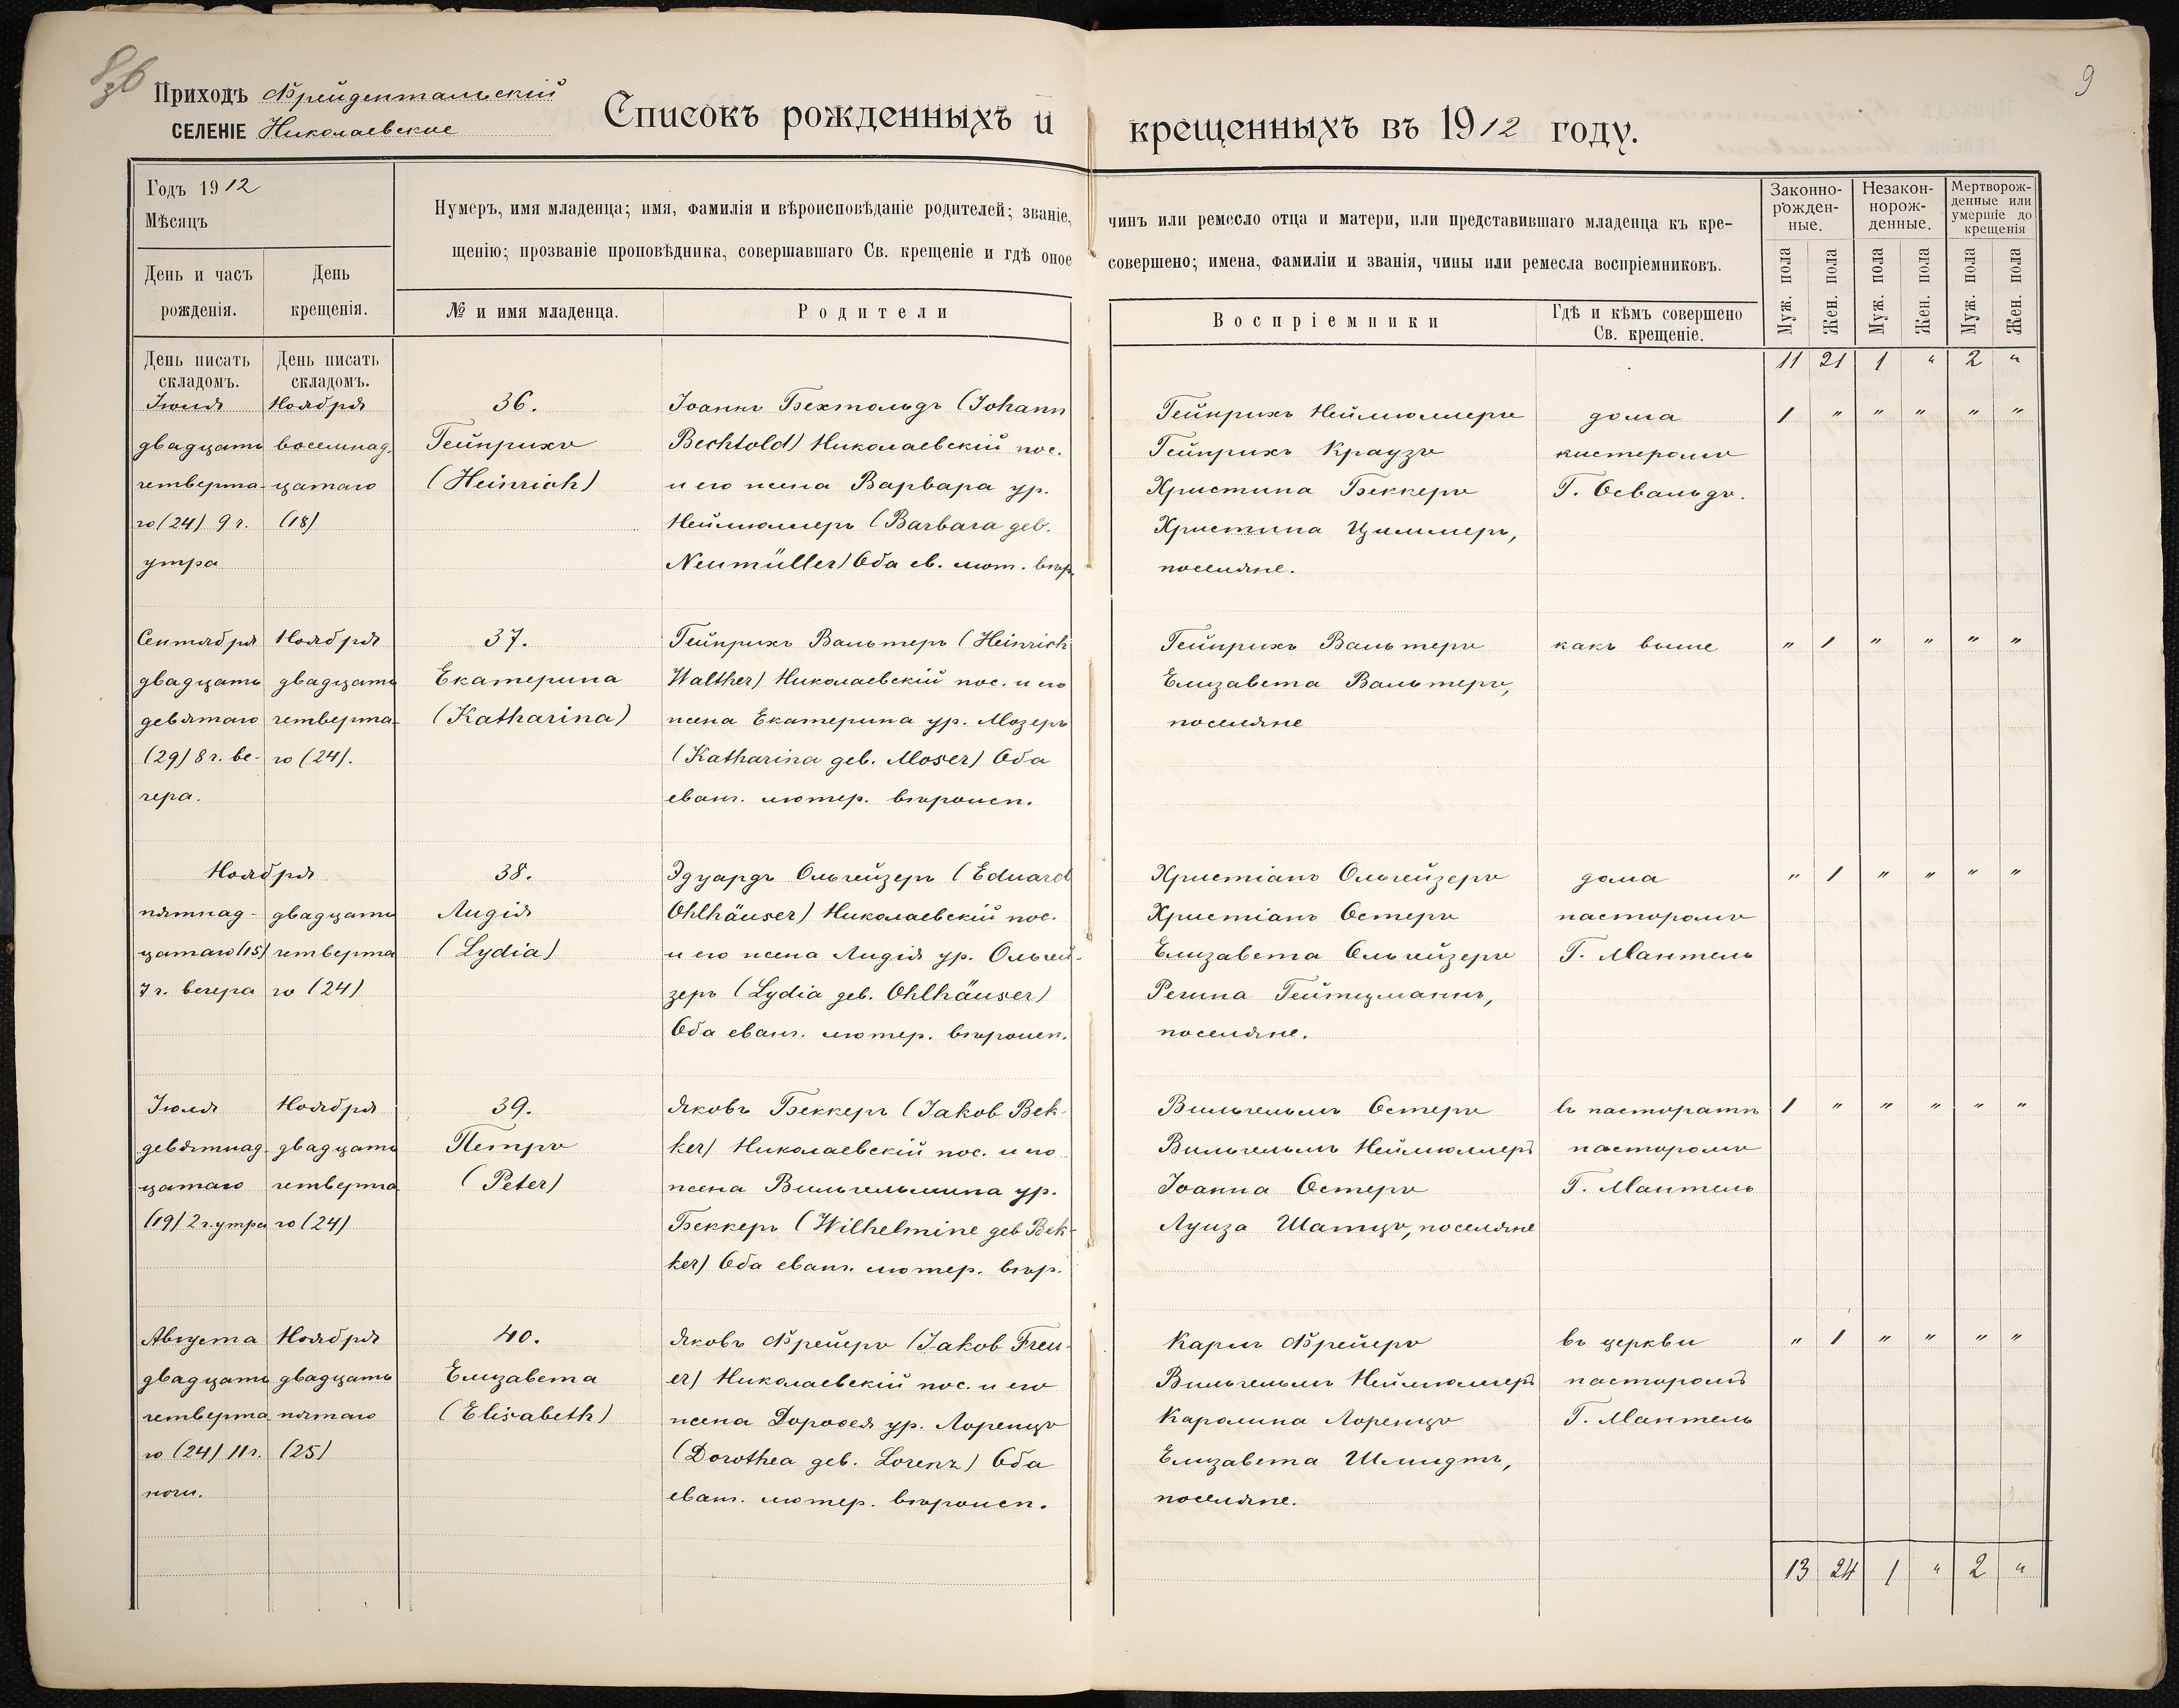 Приходъ Фрейдентальскій
СЕЛЕНІЕ Николаевское
Списокъ рожденныхъ и крещенныхъ въ 1912 году.
9
Годъ 1912
Мѣсяцъ
День и часъ рожденія.
День крещенія.
Нумеръ, имя младенца; имя, фамилія и вѣроисповѣданіе родителей; званіе, чинъ или ремесло отца и матери, или представившаго младенца къ кре-
щенію; прозваніе проповѣдника, совершавшаго Св. крещеніе и гдѣ оное совершено; имена, фамиліи и званія, чины или ремесла воспріемниковъ.
№ и имя младенца.
Родители
Воспріемники
Гдѣ и кѣмъ совершено
Св. крещеніе.
Законно-
рожден-
ные.
Незакон-
норож-
денные.
Мертворож-
денные или
умершіе до
крещенія
Муж. пола
Жен. пола
Муж. пола
Жен. пола
Муж. пола
Жен. пола
День писать
складомъ.
День писать
складомъ.
11 21 1 " 2 "
Іюля
двадцать
четверта-
го (24) 9 ч.
утра
Ноября
восемнад-
цатаго
(18)
36.
Гейнрихъ
(Heinrich)
Іоаннъ Бехтольдъ (Johann
Bechtold) Николаевскій пос.
и его жена Варвара ур.
Неймюллеръ (Barbara geb.
Neumüller) Оба ев. лют. вѣр.
Гейнрихъ Неймюллеръ
Гейнрихъ Краузъ
Христина Беккеръ
Христина Циммеръ,
поселяне.
дома
кистеромъ
Г. Освальдъ.
1 " " " " "
Сентября
двадцать
девятаго
(29) 8 ч. ве-
чера.
Ноября
двадцать
четверта-
го (24).
37.
Екатерина
(Katharina)
Гейнрихъ Вальтеръ (Heinrich
Walther) Николаевскій пос. и его
жена Екатерина ур. Мозеръ
(Katharina geb. Moser) Оба
еванг. лютер. вѣроисп.
Гейнрихъ Вальтеръ
Елизавета Вальтеръ,
поселяне
какъ выше
" 1 " " " "
Ноября
пятнад-
цатаго (15)
7 ч. вечера
двадцать
четверта
го (24)
38.
Лидія
(Lydia)
Эдуардъ Ольгейзеръ (Eduard
Ohlhäuser) Николаевскій пос.
и его жена Лидія ур. Ольгей-
зеръ (Lydia geb. Ohlhäuser)
Оба еванг. лютер. вѣроисп.
Христіанъ Ольгейзеръ
Христіанъ Остеръ
Елизавета Ольгейзеръ
Регина Гейтцманнъ,
поселяне.
дома
пасторомъ
Г. Мантель
" 1 " " " "
Іюля
девятнад-
цатаго
(19) 2 ч. утра
Ноября
двадцать
четверта
го (24)
39.
Петръ
(Peter)
Яковъ Беккеръ (Jakob Bek-
ker) Николаевскій пос. и его
жена Вильгельмина ур.
Беккеръ (Wilhelmine geb Bek-
ker) Оба еванг. лютер. вѣр.
Вильгельмъ Остеръ
Вильгельмъ Неймюллеръ
Іоанна Остеръ
Луиза Шатцъ, поселяне
въ пасторатѣ
пасторомъ
Г. Мантель
1 " " " " "
Августа
двадцать
четверта
го (24) 11 ч.
ночи.
Ноября
двадцать
пятаго
(25)
40.
Елизавета
(Elisabeth)
Яковъ Фрейеръ (Jakob Freu-
er) Николаевскій пос. и его
жена Доровея ур. Лоренцъ
(Dorothea geb. Lorenz) Оба
еванг. лютер. вѣроисп.
Карлъ Фрейеръ
Вильгельмъ Неймюллеръ
Каролина Лоренцъ
Елизавета Шмидтъ,
поселяне.
въ церкви
пасторомъ
Г. Мантель
" 1 " " " "
13 24 1 " 2 "